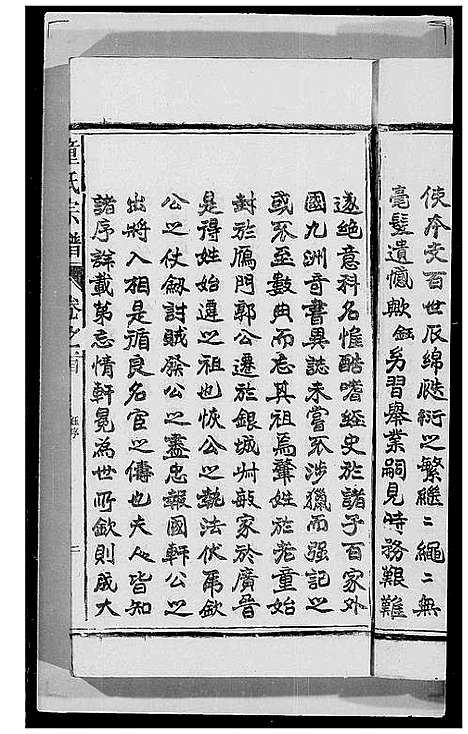 使本支百世瓜綿瓞衍之繁繼〻繩〻無
毫髮遺憾歟鈺另習舉業嗣見時務艱難
遂絕意科名惟酷嗜經史於諸子百家外
國九洲奇書異誌未嘗不涉獵而强記之
或不至數典而忘其祖焉肇姓於老童始
封於鴈門郭公遷於銀城州敍家於廣音
是得姓始遷之祖也恢公之執法伏帝欽
公之仗劔討賊發公之盡忠報國軒公之
出將入相是循良名宦之儔也夫人皆知
諸序詳載第忘情軒冕為世所欽則成大
童氏宗譜
卷之首
鈺序
二